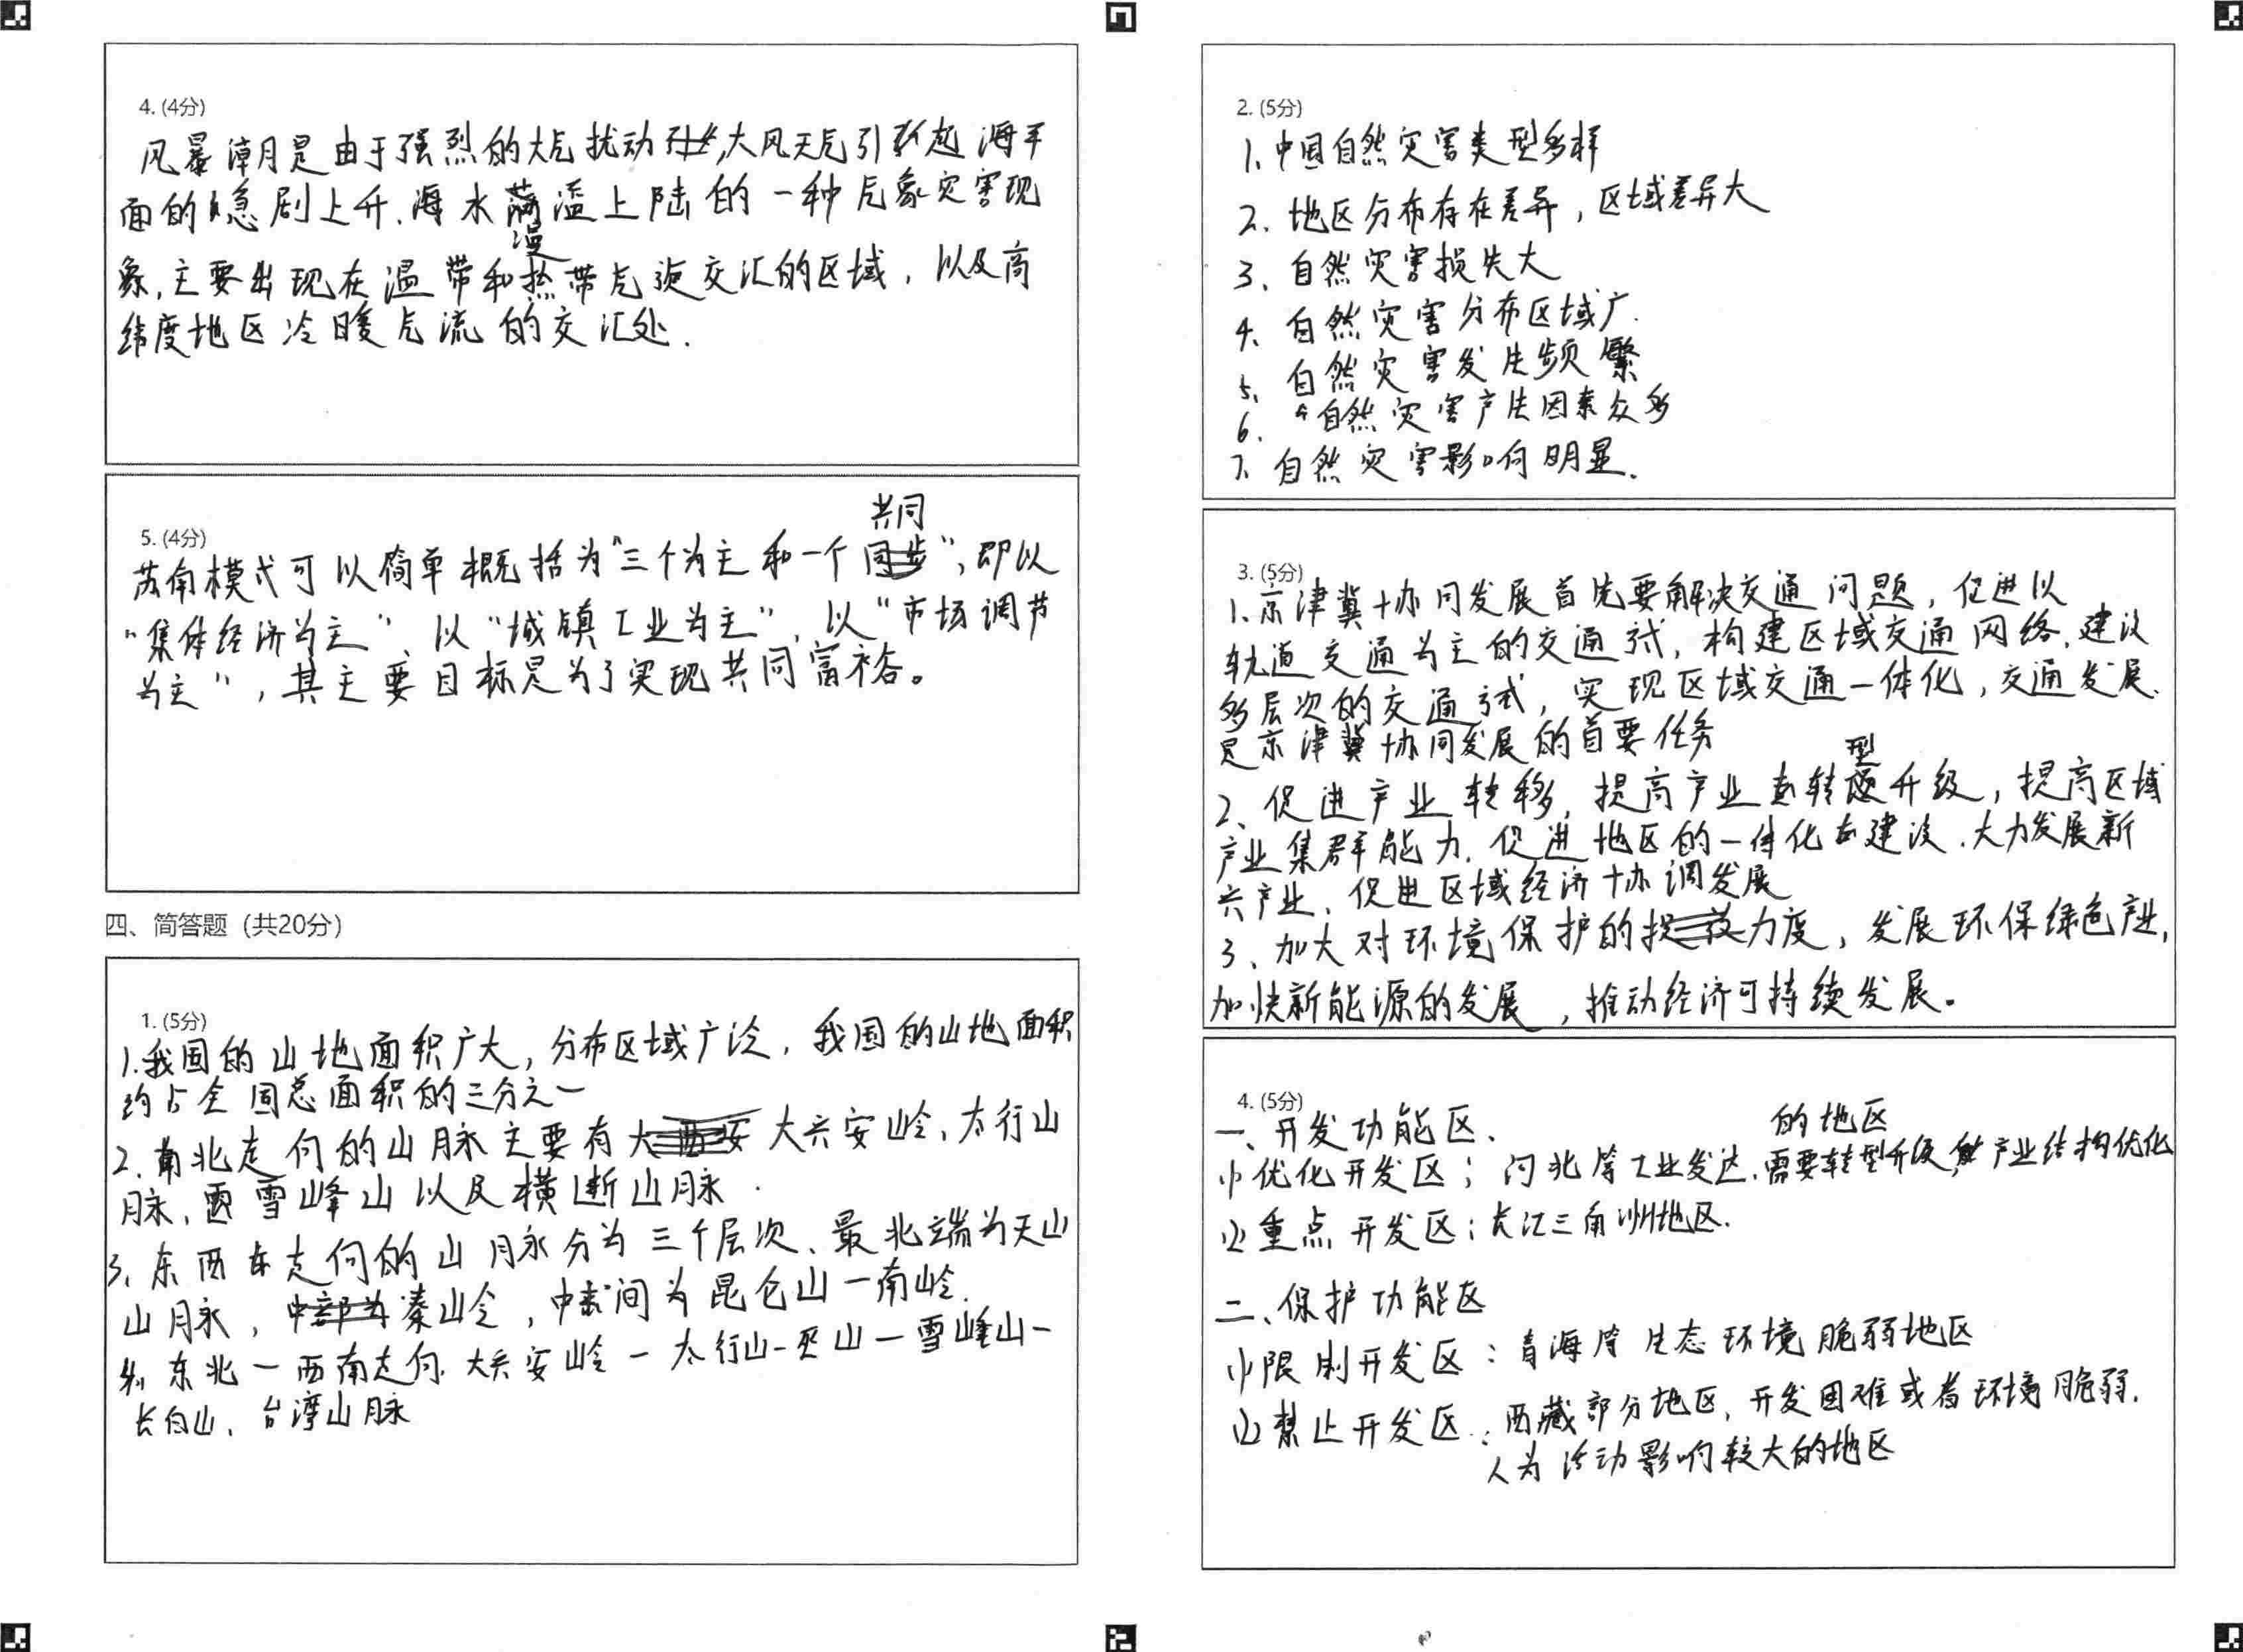 4. (4分)
风暴潮是由于强烈的大气扰动,大风天气引起海平
面的急剧上升、海水漫溢上陆的一种气象灾害现
象,主要出现在温带和热带气旋交汇的区域,以及高
纬度地区冷暖气流的交汇处.
5. (4分)
共同
苏南模式可以简单概括为“三个为主和一个”,即以
“集体经济为主”、以“城镇工业为主”、以“市场调节
为主”,其主要目标是为了实现共同富裕。
四、简答题(共20分)
1. (5分)
1.我国的山地面积广大,分布区域广泛,我国的山地面积
约占全国总面积的三分之一
2.南北走向的山脉主要有大兴安岭、太行山
脉、雪峰山以及横断山脉.
3、东西走向的山脉分为三个层次、最北端为天山
山脉,秦岭,中间为昆仑山一南岭.
4、东北一西南走向.大兴安岭一太行山一巫山一雪峰山一
长白山、台湾山脉
2. (5分)
1、中国自然灾害类型多样
2、地区分布存在差异,区域差异大
3、自然灾害损失大
4、自然灾害分布区域广.
5、自然灾害发生频繁
6、自然灾害产生因素众多
7、自然灾害影响明显.
3. (5分)
1、京津冀协同发展首先要解决交通问题,促进以
轨道交通为主的交通方式,构建区域交通网络,建设
多层次的交通方式,实现区域交通一体化,交通发展
是京津冀协同发展的首要任务
2、促进产业转移,提高产业转型升级,提高区域
产业集群能力,促进地区的一体化建设.大力发展新
兴产业,促进区域经济协调发展
3、加大对环境保护的力度,发展环保绿色产业,
加快新能源的发展,推动经济可持续发展。
4. (5分)
一、开发功能区、
的地区
(1)优化开发区;河北等工业发达、需要转型升级,产业结构优化
(2)重点开发区;长江三角洲地区.
二、保护功能区
(1)限制开发区:青海等生态环境脆弱地区
(2)禁止开发区:西藏部分地区,开发困难或者环境脆弱.
人为活动影响较大的地区